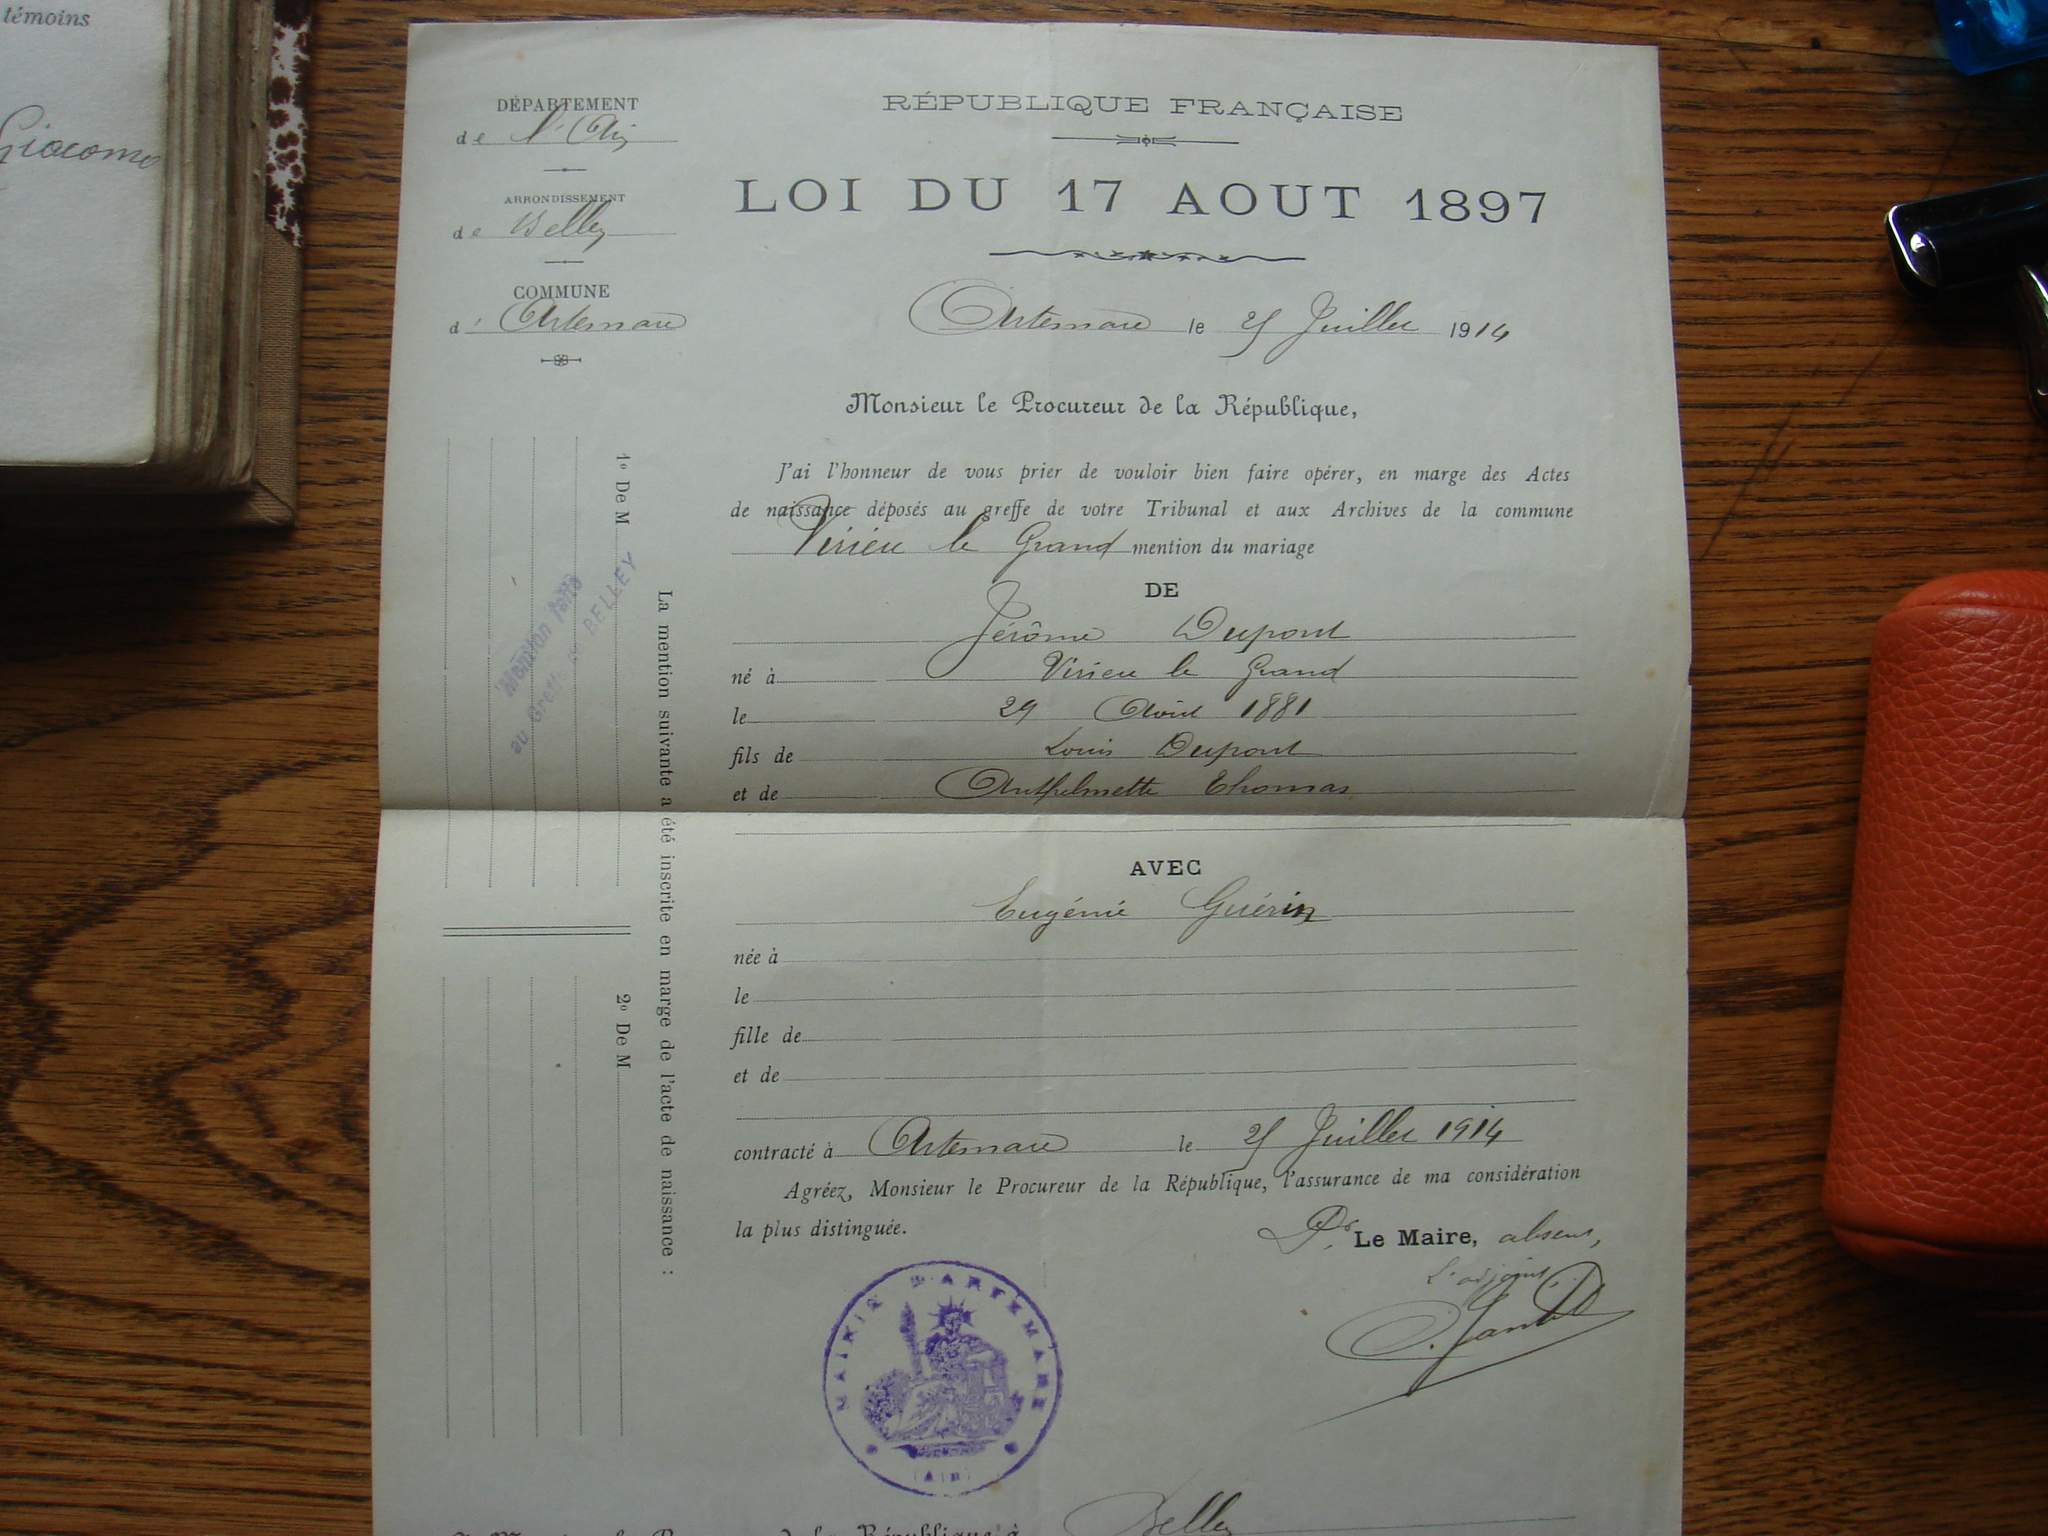 témoins
Giacomo
DÉPARTEMENT
de l'Ain
ARRONDISSEMENT
de Belley
COMMUNE
d' Artemare
RÉPUBLIQUE FRANÇAISE
LOI DU 17 AOUT 1897
Artemare le 25 Juillet 1914
Monsieur le Procureur de la République,
J'ai l'honneur de vous prier de vouloir bien faire opérer, en marge des Actes
de naissance déposés au greffe de votre Tribunal et aux Archives de la commune
Virieu le Grand mention du mariage
DE
Jérôme Dupont
né à Virieu le Grand
le 29 Août 1881
fils de Louis Dupont
et de Anthelmette Thomas
AVEC
Eugénie Guérin
née à
le
fille de
et de
contracté à Artemare le 25 Juillet 1914
Agréez, Monsieur le Procureur de la République, l'assurance de ma considération
la plus distinguée.
Pr. Le Maire, absent,
L'adjoint
La mention suivante a été inscrite en marge de l'acte de naissance :
1º De M
Mention faite
au Greffe de BELLEY
2º De M
MAIRIE D'ARTEMARE
(AIN)
de la République à Belley